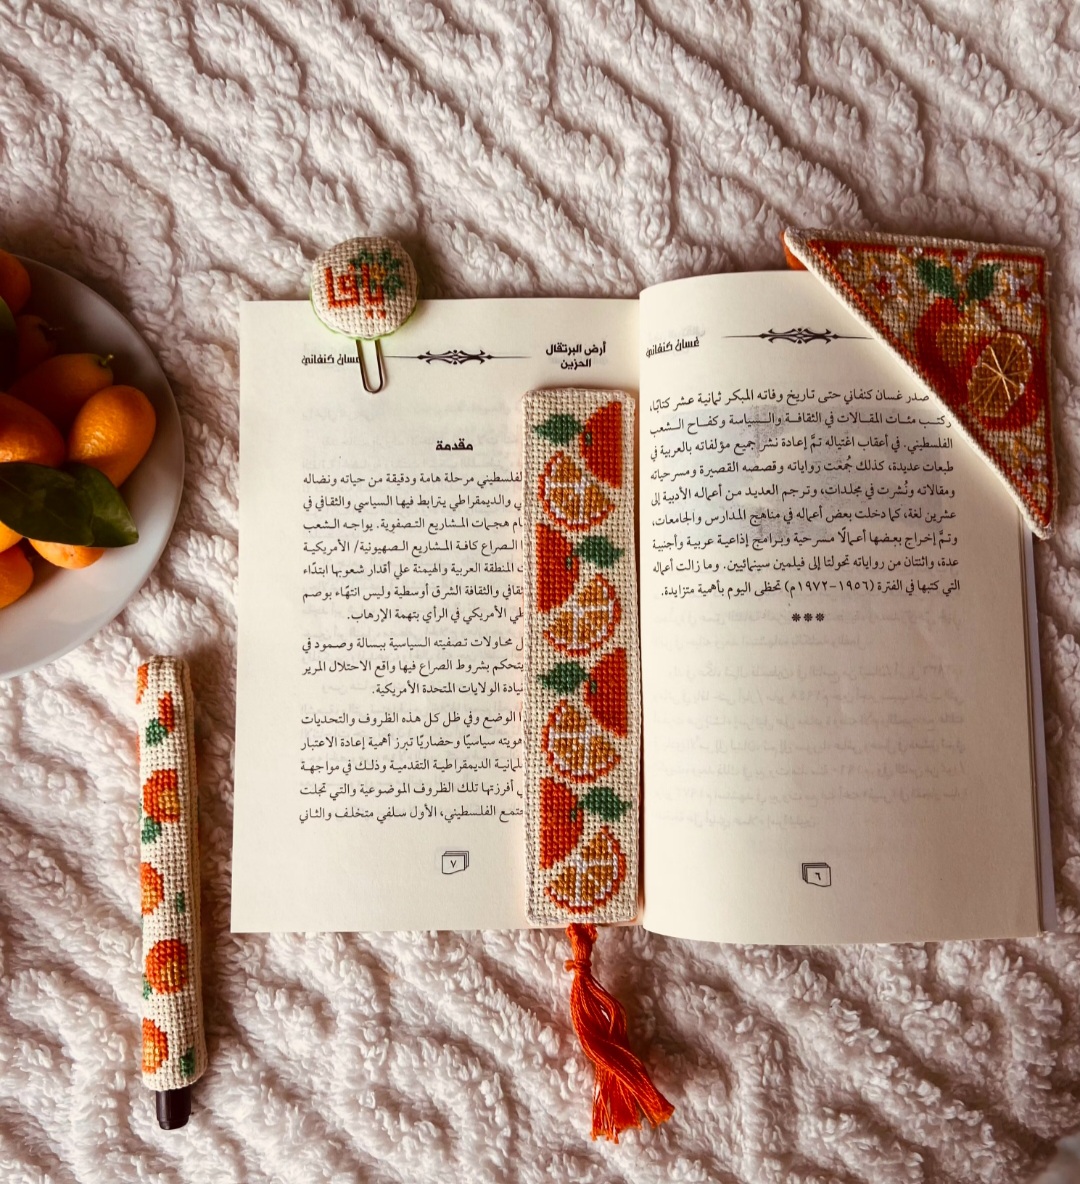 غسان كنفاني
صدر غسان كنفاني حتى تاريخ وفاته المبكر ثمانية عشر كتابًا،
وكتب مئات المقالات في الثقافة والسياسة وكفاح الشعب
الفلسطيني. في أعقاب اغتياله تمَّ إعادة نشر جميع مؤلفاته بالعربية في
طبعات عديدة، كذلك جُمعت رواياته وقصصه القصيرة ومسرحياته
ومقالاته ونُشرت في مجلدات، وترجم العديد من أعماله الأدبية إلى
عشرين لغة، كما دخلت بعض أعماله في مناهج المدارس والجامعات،
وتمَّ إخراج بعضها أعمالًا مسرحية وبرامج إذاعية عربية وأجنبية
عدة، واثنتان من رواياته تحولتا إلى فيلمين سينمائيين. وما زالت أعماله
التي كتبها في الفترة (١٩٥٦-١٩٧٢م) تحظى اليوم بأهمية متزايدة.
***
٦
يافا
أرض البرتقال
الحزين
غسان كنفاني
مقدمة
الفلسطيني مرحلة هامة ودقيقة من حياته ونضاله
والديمقراطي يترابط فيها السياسي والثقافي في
هجمات المشاريع التصفوية. يواجه الشعب
الصراع كافة المشاريع الصهيونية/ الأمريكية
المنطقة العربية والهيمنة علي أقدار شعوبها ابتدًاء
والثقافة الشرق أوسطية وليس انتهًاء بوصم
الأمريكي في الرأي بتهمة الإرهاب.
محاولات تصفيته السياسية ببسالة وصمود في
يتحكم بشروط الصراع فيها واقع الاحتلال المرير
الولايات المتحدة الأمريكية.
الوضع وفي ظل كل هذه الظروف والتحديات
هويته سياسيًا وحضاريًا تبرز أهمية إعادة الاعتبار
الديمقراطية التقدمية وذلك في مواجهة
أفرزتها تلك الظروف الموضوعية والتي تجلت
الفلسطيني، الأول سلفي متخلف والثاني
٧